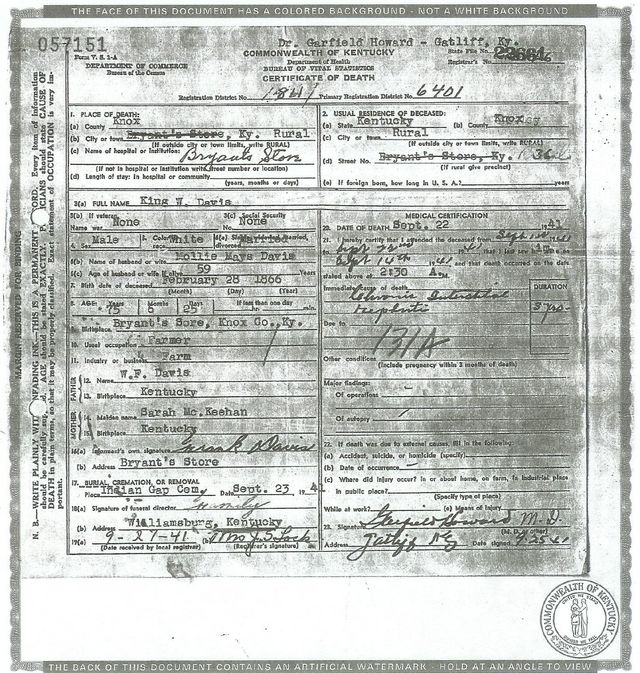 THE FACE OF THIS DOCUMENT HAS A COLORED BACKGROUND - NOT A WHITE BACKGROUND
057151
Dr. Garfield Howard - Gatliff, Ky.
Form V. S. 1-A
COMMONWEALTH OF KENTUCKY
State File No.
DEPARTMENT OF COMMERCE
Department of Health
Registrar's No.
Bureau of the Census
BUREAU OF VITAL STATISTICS
CERTIFICATE OF DEATH
Registration District No. Primary Registration District No. 6401
1. PLACE OF DEATH:
(a) County Knox
(b) City or town Bryant's Store, Ky. Rural
(If outside city or town limits, write RURAL)
(c) Name of hospital or institution: Bryants Store
(If not in hospital or institution write street number or location)
(d) Length of stay: In hospital or community
(years, months or days)
2. USUAL RESIDENCE OF DECEASED:
(a) State Kentucky (b) County Knox
(c) City or town Rural
(If outside city or town limits, write RURAL)
(d) Street No. Bryant's Store, Ky.
(If rural give precinct)
(e) If foreign born, how long in U. S. A.? years
3(a) FULL NAME King W. Davis
3(b) If veteran, Name war None
3(c) Social Security No. None
4. Sex Male 5. Color White Married
6(b) Name of husband or wife Mollie Mays Davis
6(c) Age of husband or wife if alive 59 Years
7. Birth date of deceased February 28 1866
(Month) (Day) (Year)
8. AGE: Years 75 Months 6 Days 25 If less than one day
hrs. min.
9. Birthplace Bryant's Sore, Knox Co., Ky.
10. Usual occupation Farmer
11. Industry or business Farm
FATHER
12. Name W.F. Davis
13. Birthplace Kentucky
MOTHER
14. Maiden name Sarah Mc.Keehan
15. Birthplace Kentucky
16(a) Informant's own signature Davis
(b) Address Bryant's Store
17. BURIAL, CREMATION, OR REMOVAL
Place Indian Gap Cem. Date Sept. 23 1941
18(a) Signature of funeral director Family
(b) Address Williamsburg, Kentucky
19(a) 9-27-41 (b) Mrs J.S. Lock
(Date received by local registrar) (Registrar's signature)
MEDICAL CERTIFICATION
20. DATE OF DEATH Sept. 22 1941
21. I hereby certify that I attended the deceased from
Sept 14th 1941 and that death occurred on the date
stated above at 2:30 A. M.
Immediate cause of death
Chronic Interstitial
Nephritis
DURATION
3 yrs.
Due to
131A
Other conditions
(Include pregnancy within 3 months of death)
Major findings:
Of operations
Of autopsy
22. If death was due to external causes, fill in the following:
(a) Accident, suicide, or homicide (specify)
(b) Date of occurrence
(c) Where did injury occur? in or about home, on farm, in industrial place
in public place?
(Specify type of place)
While at work? (e) Means of injury
23. Signature Garfield Howard M.D.
(M. D. or other)
Address Gatliff Ky Date signed 9/25 41
N. B.—WRITE PLAINLY WITH UNFADING INK—THIS IS A PERMANENT RECORD. Every item of information
should be carefully supplied. AGE should be stated EXACTLY. PHYSICIANS should state CAUSE OF
DEATH in plain terms, so that it may be properly classified. Exact statement of OCCUPATION is very im-
portant.
MARGIN RESERVED FOR BINDING
COMMONWEALTH OF KENTUCKY
THE BACK OF THIS DOCUMENT CONTAINS AN ARTIFICIAL WATERMARK - HOLD AT AN ANGLE TO VIEW